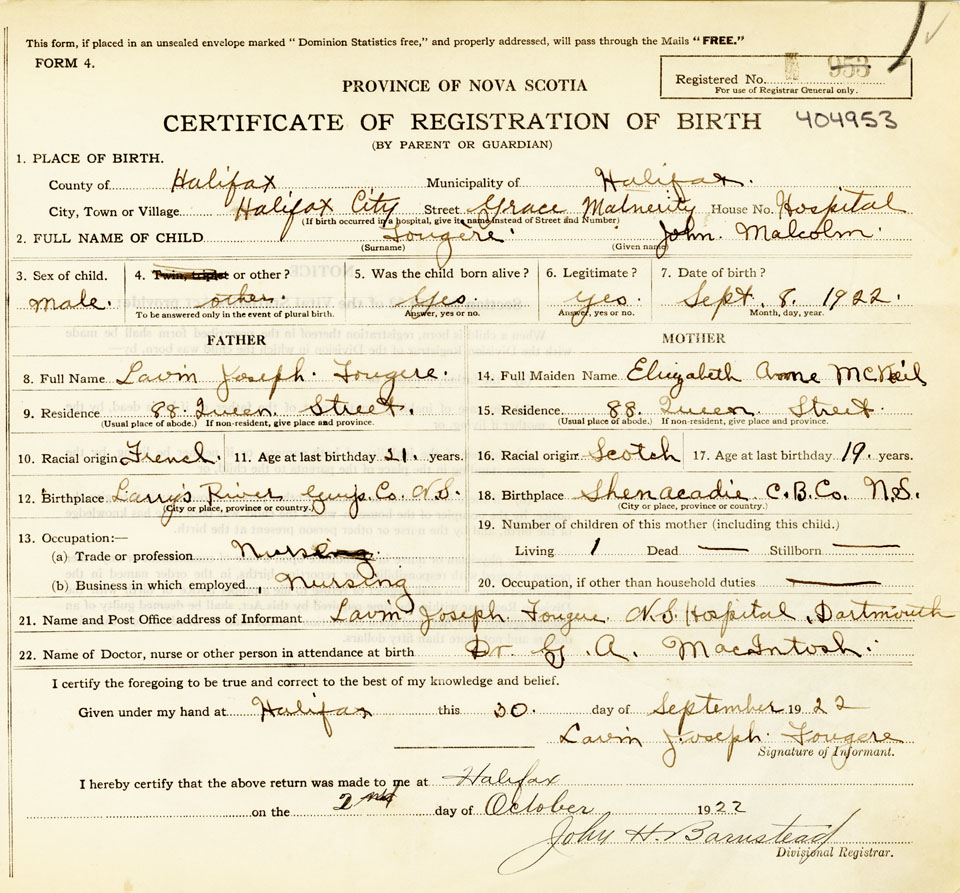 This form, if placed in an unsealed envelope marked "Dominion Statistics free," and properly addressed, will pass through the Mails "FREE."
FORM 4.
Registered No. 953
For use of Registrar General only.
PROVINCE OF NOVA SCOTIA
CERTIFICATE OF REGISTRATION OF BIRTH 404953
(BY PARENT OR GUARDIAN)
1. PLACE OF BIRTH.
County of Halifax Municipality of Halifax.
City, Town or Village Halifax City Street Grace Maternity House No. Hospital
(If birth occurred in a hospital, give its name instead of Street and Number)
2. FULL NAME OF CHILD Fougere. John. Malcolm.
(Surname) (Given name)
3. Sex of child. 4. Twin, triplet or other? 5. Was the child born alive? 6. Legitimate? 7. Date of birth?
Male. other. Yes. Yes. Sept. 8. 1922.
To be answered only in the event of plural birth. Answer, yes or no. Answer, yes or no. Month, day, year.
FATHER MOTHER
8. Full Name Lavin Joseph. Fougere. 14. Full Maiden Name Elizabeth Anne McNeil
9. Residence 88. Queen. Street. 15. Residence 88. Queen. Street.
(Usual place of abode.) If non-resident, give place and province. (Usual place of abode.) If non-resident, give place and province.
10. Racial origin French. 11. Age at last birthday 21. years. 16. Racial origin Scotch 17. Age at last birthday 19. years.
12. Birthplace Larry's River Guys. Co. N.S. 18. Birthplace Shenacadie C.B.Co. N.S.
(City or place, province or country.) (City or place, province or country.)
19. Number of children of this mother (including this child.)
13. Occupation:—
Living 1 Dead — Stillborn —
(a) Trade or profession Nursing.
(b) Business in which employed Nursing 20. Occupation, if other than household duties —
21. Name and Post Office address of Informant Lavin Joseph. Fougere N.S. Hospital, Dartmouth
22. Name of Doctor, nurse or other person in attendance at birth Dr. G. A. MacIntosh.
I certify the foregoing to be true and correct to the best of my knowledge and belief.
Given under my hand at Halifax this 30. day of September 1922
Lavin Joseph. Fougere
Signature of Informant.
I hereby certify that the above return was made to me at Halifax
on the 2nd day of October 1922
John H. Barnstead
Divisional Registrar.